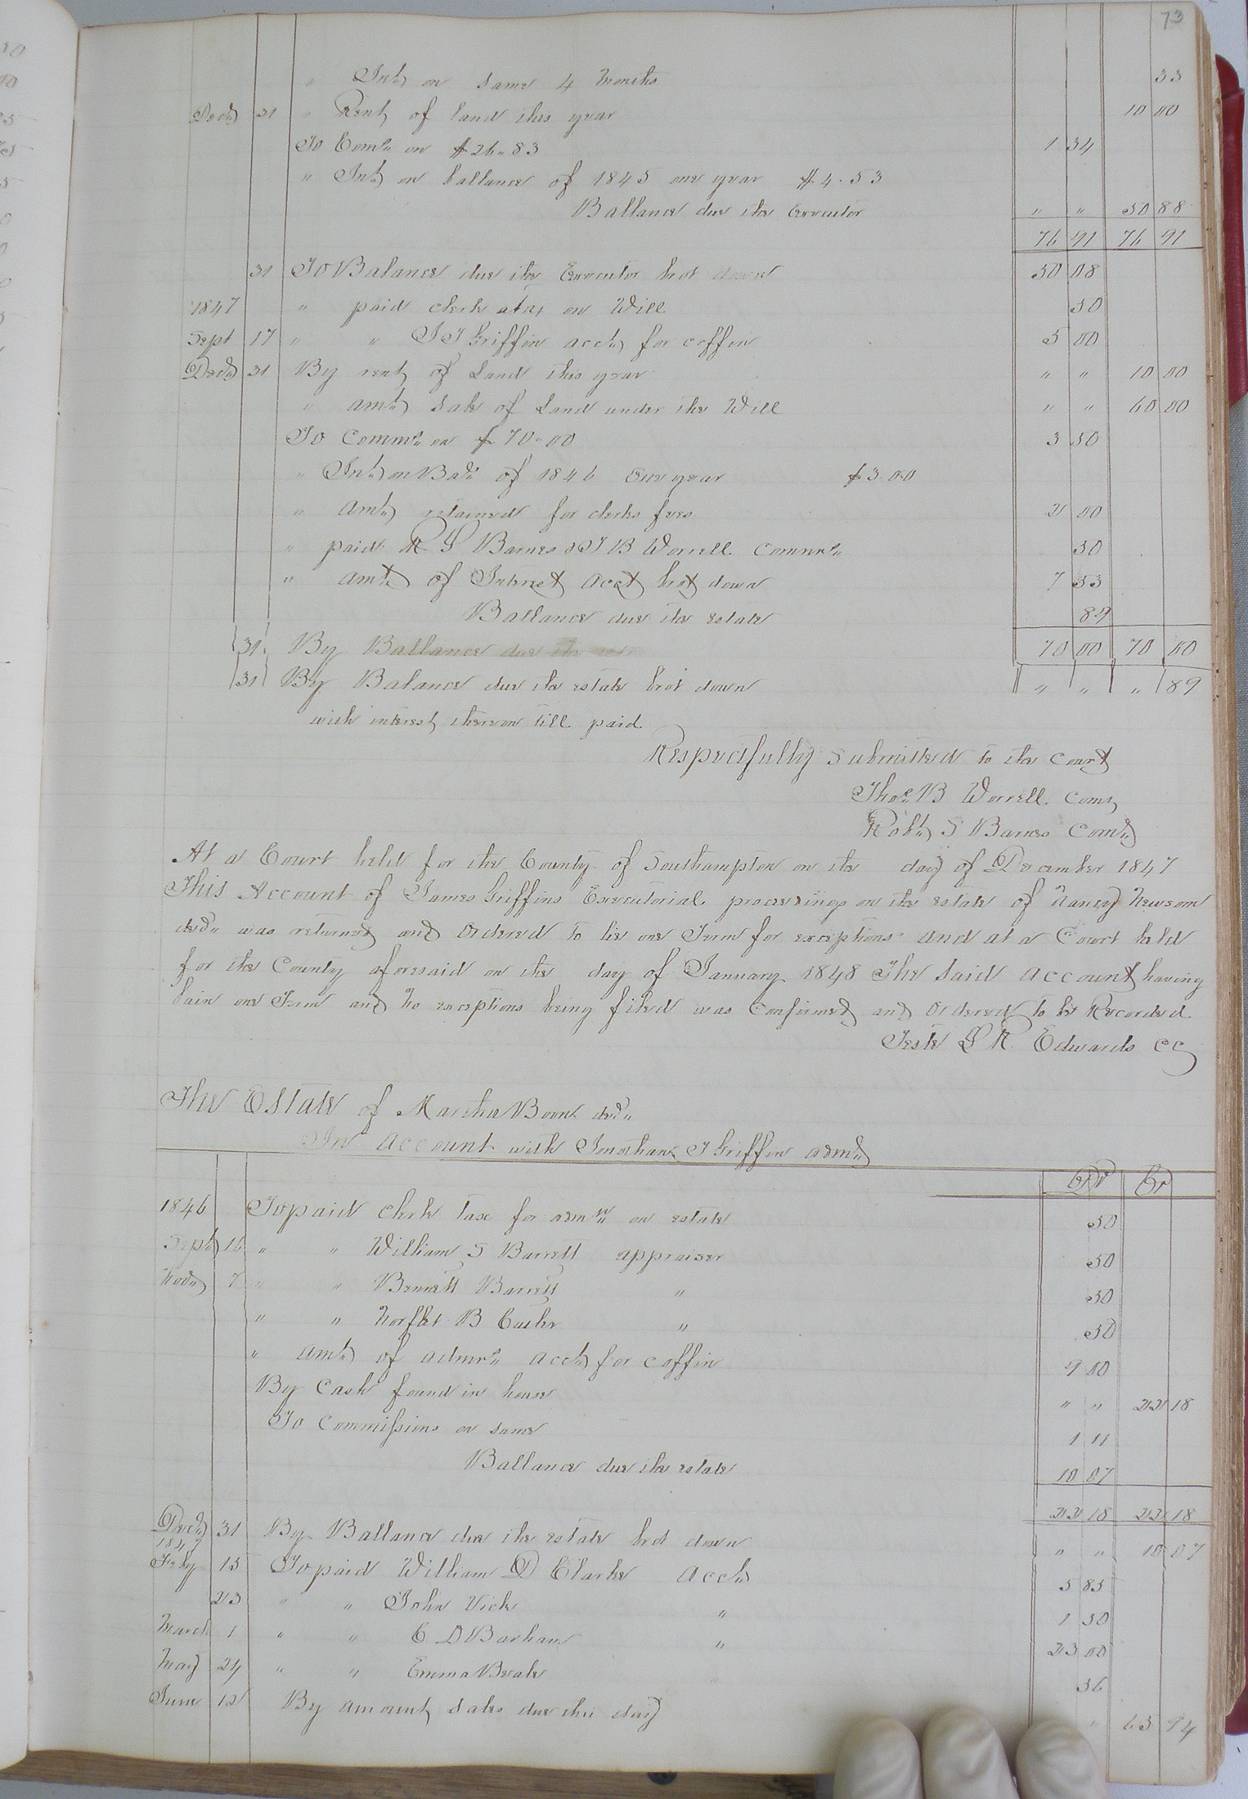 73
" Int on same 4 months 33
Decr 31 " Rent of land this year 10 00
To Comn on $26.83 1 34
" Int on ballance of 1845 one year $4.53
Ballance due the Executor " " 50 88
76 91 76 91
31 To Balance due the Executor brot down 50 08
1847 " paid clerk atax on Will 50
Sept 17 " " J T Griffin acct for coffin 5 00
Decr 31 By rent of Land this year " " 10 00
" amt sale of Land under the Will " " 60 00
To Commn on $70.00 3 50
" Int on Bale of 1846 one year $3.00
" Amt retained for clerks fees 2 00
" paid R S Barnes & T B Worrell Commrs 50
" amt of Interest acct brot down 7 53
Ballance due the estate 89
31 By Ballance due the
70 00 70 00
31 By Balance due the estate brot down " " " 89
with interest thereon till paid
Respectfully submitted to the court
Thos B Worrell Coms
Robt S Barnes Comr
At a Court held for the County of Southampton on the day of December 1847
This Account of James Griffins Executorial proceedings on the estate of Nancy Newsom
decd was returned and Ordered to lie one Term for exceptions and at a Court held
for the County aforesaid on the day of January 1848 The said account having
lain one Term and no exceptions being filed was Confirmed and Ordered to be Recorded
Teste L R Edwards CC
The Estate of Martha Boon decd
In account with Jonathan T Griffin admr
Dr Cr
1846 To paid clerk tax for admn on estate 50
Sept 16 " " William S Barrett appraiser 50
Novr 7 " " Bennett Barrett " 50
" " Norflet B Cutler " 50
" amt of admrs acct for coffin 9 00
By Cash found in house " " 22 18
To Commissions on same 1 11
Ballance due the estate 10 07
22 18 22 18
Decr 31 By Ballance due the estate brot down " " 10 07
1847
Feby 15 To paid William D Clarke acct 5 85
23 " " John Vick " 1 50
March 1 " " C D Barham " 23 00
May 24 " " Emma Beale " 36
June 12 By amount sales due this day " 63 94